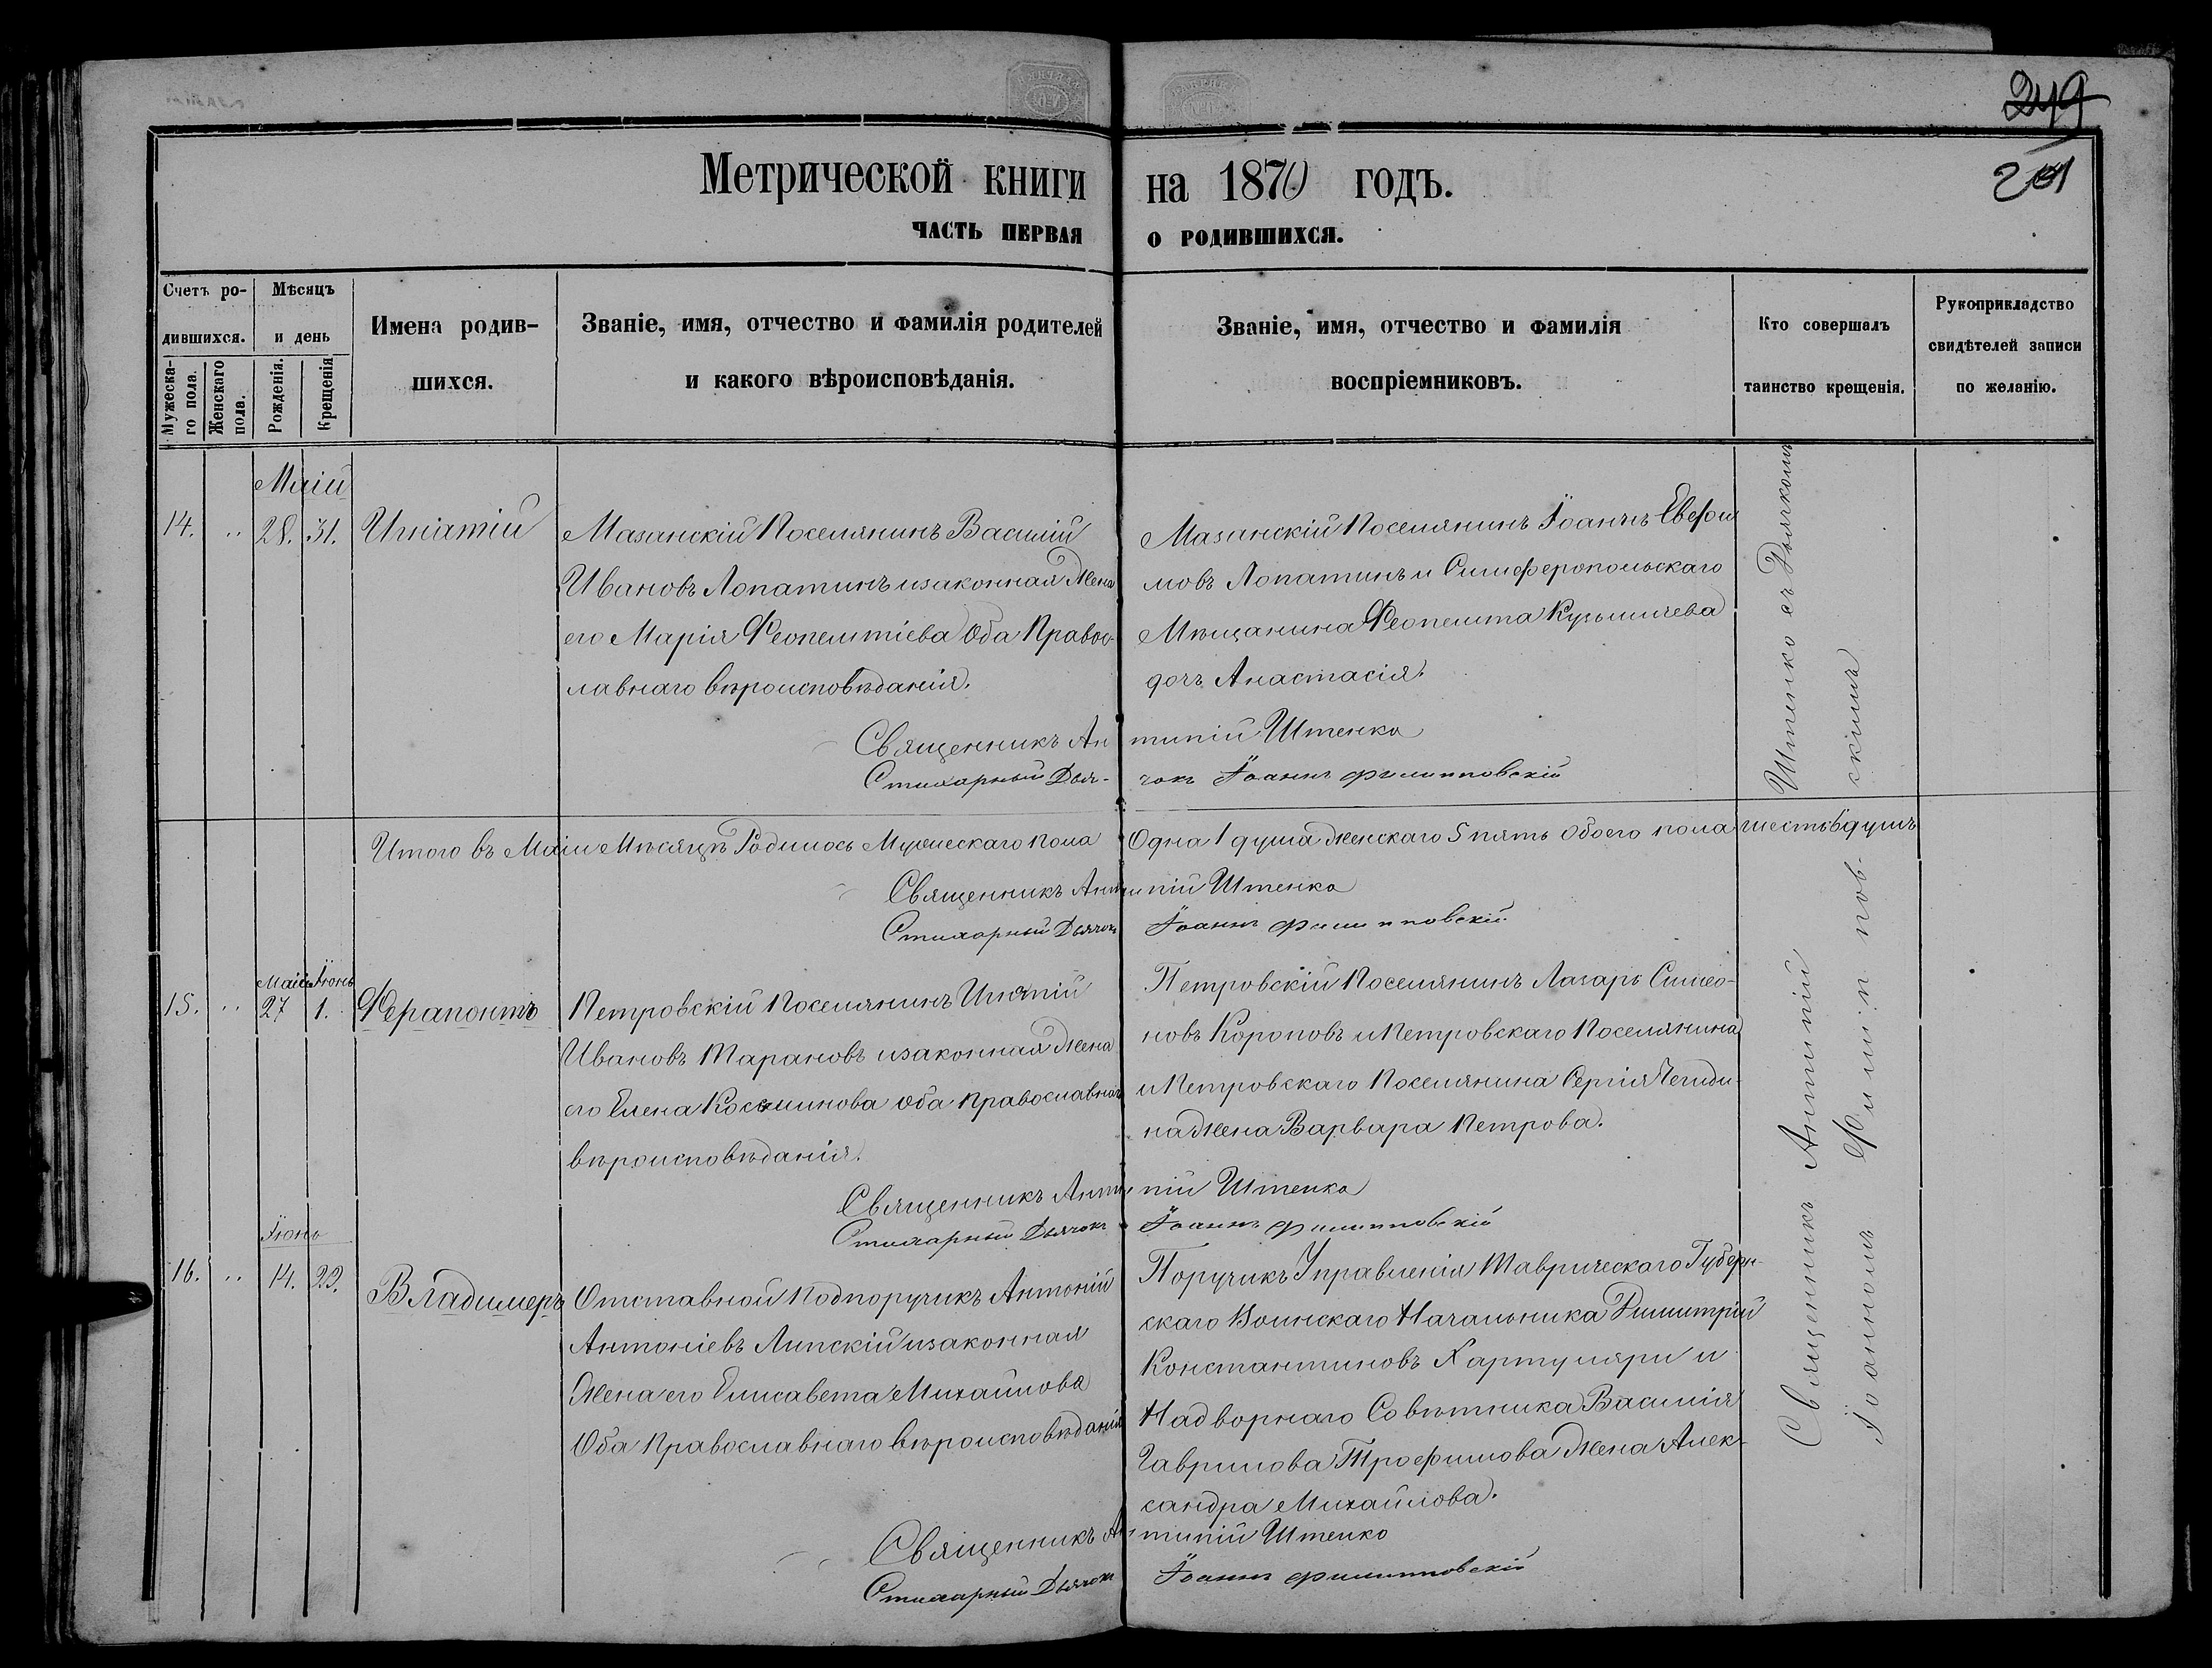 249
201
Метрической книги на 1870 годъ.
ЧАСТЬ ПЕРВАЯ О РОДИВШИХСЯ.
Счетъ ро-
дившихся.
Мужеска-
го пола.
Женскаго
пола.
Мѣсяцъ
и день
Рожденія.
Крещенія
Имена родив-
шихся.
Званіе, имя, отчество и фамилія родителей
и какого вѣроисповѣданія.
Званіе, имя, отчество и фамилія
воспріемниковъ.
Кто совершалъ
таинство крещенія.
Рукоприкладство
свидѣтелей записи
по желанію.
Маій
14. " 28. 31. Игнатій
Мазанскій Поселянинъ Василій
Ивановъ Лопатинъ и законная Жена
его Марія Феопемтіева Оба Правос-
лавнаго вѣроисповѣданія.
Мазанскій Поселянинъ Іоаннъ Евфи
мовъ Лопатинъ и Симферопольскаго
Мѣщанина Феопемта
дочь Анастасія.
Священникъ Антипій Штенко
Стихарный Дьячокъ Іоаннъ Филипповскій
Итого въ Маіи Мѣсяцѣ Родилось Мужескаго пола Одна 1 душа Женскаго 5 пять Обоего пола шесть 6 душъ
Священникъ Антипій Штенко
Стихарный Дьячокъ Іоаннъ Филипповскій
Маій Іюнь
15. " 27 1. Ферапонтъ
Петровскій Поселянинъ Игнатій
Ивановъ Тарановъ и законная Жена
его Елена Косминова Оба Православнаго
вѣроисповѣданія.
Петровскій Поселянинъ Лазарь Симео-
новъ Короповъ и Петровскаго Поселянина
и Петровскаго Поселянина Сергія
на Жена Варвара Петрова.
Священникъ Антипій Штенко
Стихарный Дьячокъ Іоаннъ Филипповскій
Іюнь
16. " 14. 22. Владимеръ
Отставной Подпоручикъ Антоній
Антоніевъ Липскій и законная
Жена его Елисавета Михаилова
Оба Православнаго вѣроисповѣданія
Поручикъ Управленія Таврическаго Губерн-
скаго Воинскаго Начальника Димитрій
Константиновъ Хартуляри и
Надворнаго Совѣтника Василія
Гаврилова Трофимова Жена Алек-
сандра Михайлова.
Священникъ Антипій Штенко
Стихарный Дьячокъ Іоаннъ Филипповскій
Священникъ Антипій Штенко съ Дьячкомъ
Іоанномъ Филипповскимъ